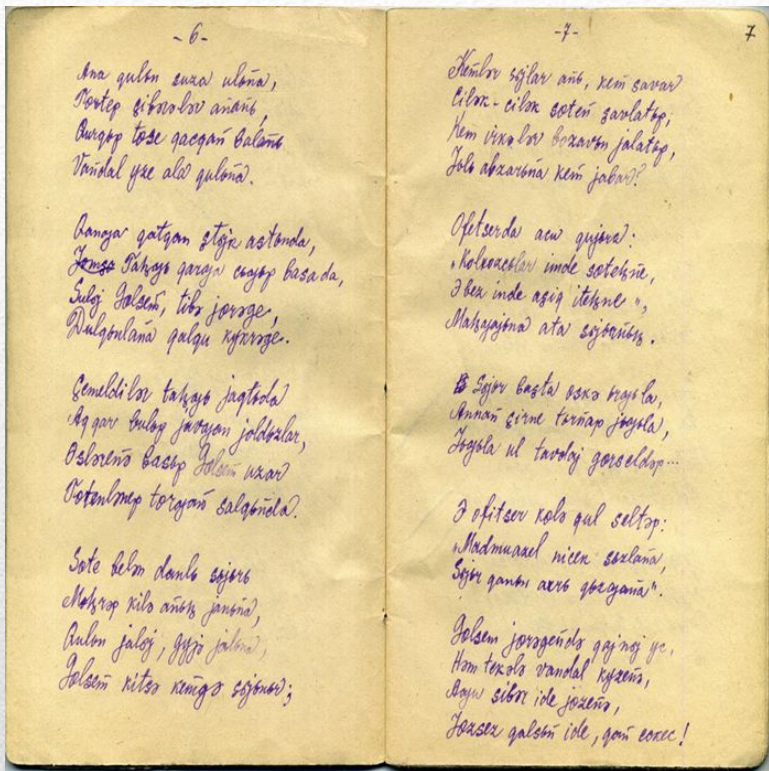 -6-
Ana qulьn suza ulьna,
Tɵrtep çibərələr anaнь,
Qurqьp tɵşe qacqan balanь
Vandal yze ala qulьna.
Qanƣa qatqan ştьk astьnda,
Taңƣь qarƣa basa da,
Sulьj Gɵlsem, tibə jɵrəge,
Dulqьnlana qalqu kykrəge.
Çemeldilər taңƣь jaqtьda
Aq qar bulьp javƣan joldьzlar,
Ɵslərenə basьp Gɵlsem uzar
Tɵtenlənep torƣan salqьnda.
Sɵte belən danlь sьjьrь
Mɵgrəp kilə anьң janьna,
Qulьn jalьj, gyjə jalьna,
Gɵlsem kitsə kemgə sьjьnьr;
-7-
7
Kemlər sьjlar anь, kem savar
Cilək-cilək sɵten şavlatьp;
Kem bozavьn jalatьp,
Jolь abzarьna kem jabar?
Ofetserda acu qujьra:
"Kolxozcьlar imde sɵteңne,
Ə bez inde aşьq iteңne",
Maңƣajьna ata sьjьrnьң.
Sьjьr başta ɵskə ьrƣьla,
Annan çirne tьrnap jьƣьla,
Jьƣьla ul tavdaj gɵrseldəp...
Ə ofitser kɵlə qul seltəp:
"Madmuazel nicek sьzlana,
Sьjьr qanьn axrь qьzƣana".
Gɵlsem jɵrəgendə qajnьj yc,
Həm tekələ vandal kyzenə,
Aƣu sibər ide jɵzenə,
Jɵzsez qalsьn ide, qan ecкec!